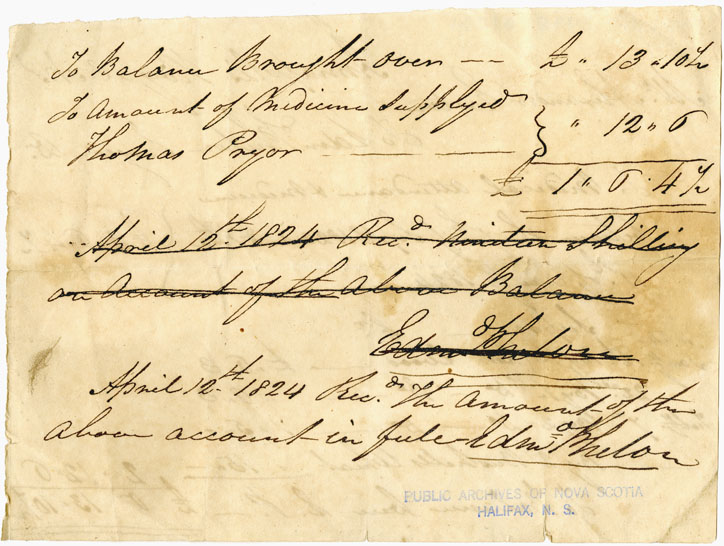 To Balance Brought over -- £ " 13 " 10 1/2
To Amount of Medicine Supplyed
Thomas Pryor — — — " 12 " 6
£ 1 " 6 . 4 1/2
April 12th 1824 Recd Nineteen Shilling
on Account of the above Balance
Edmd Phelon
April 12th 1824 Recd The Amount of the
above account in full Edmd Phelon
PUBLIC ARCHIVES OF NOVA SCOTIA
HALIFAX, N. S.